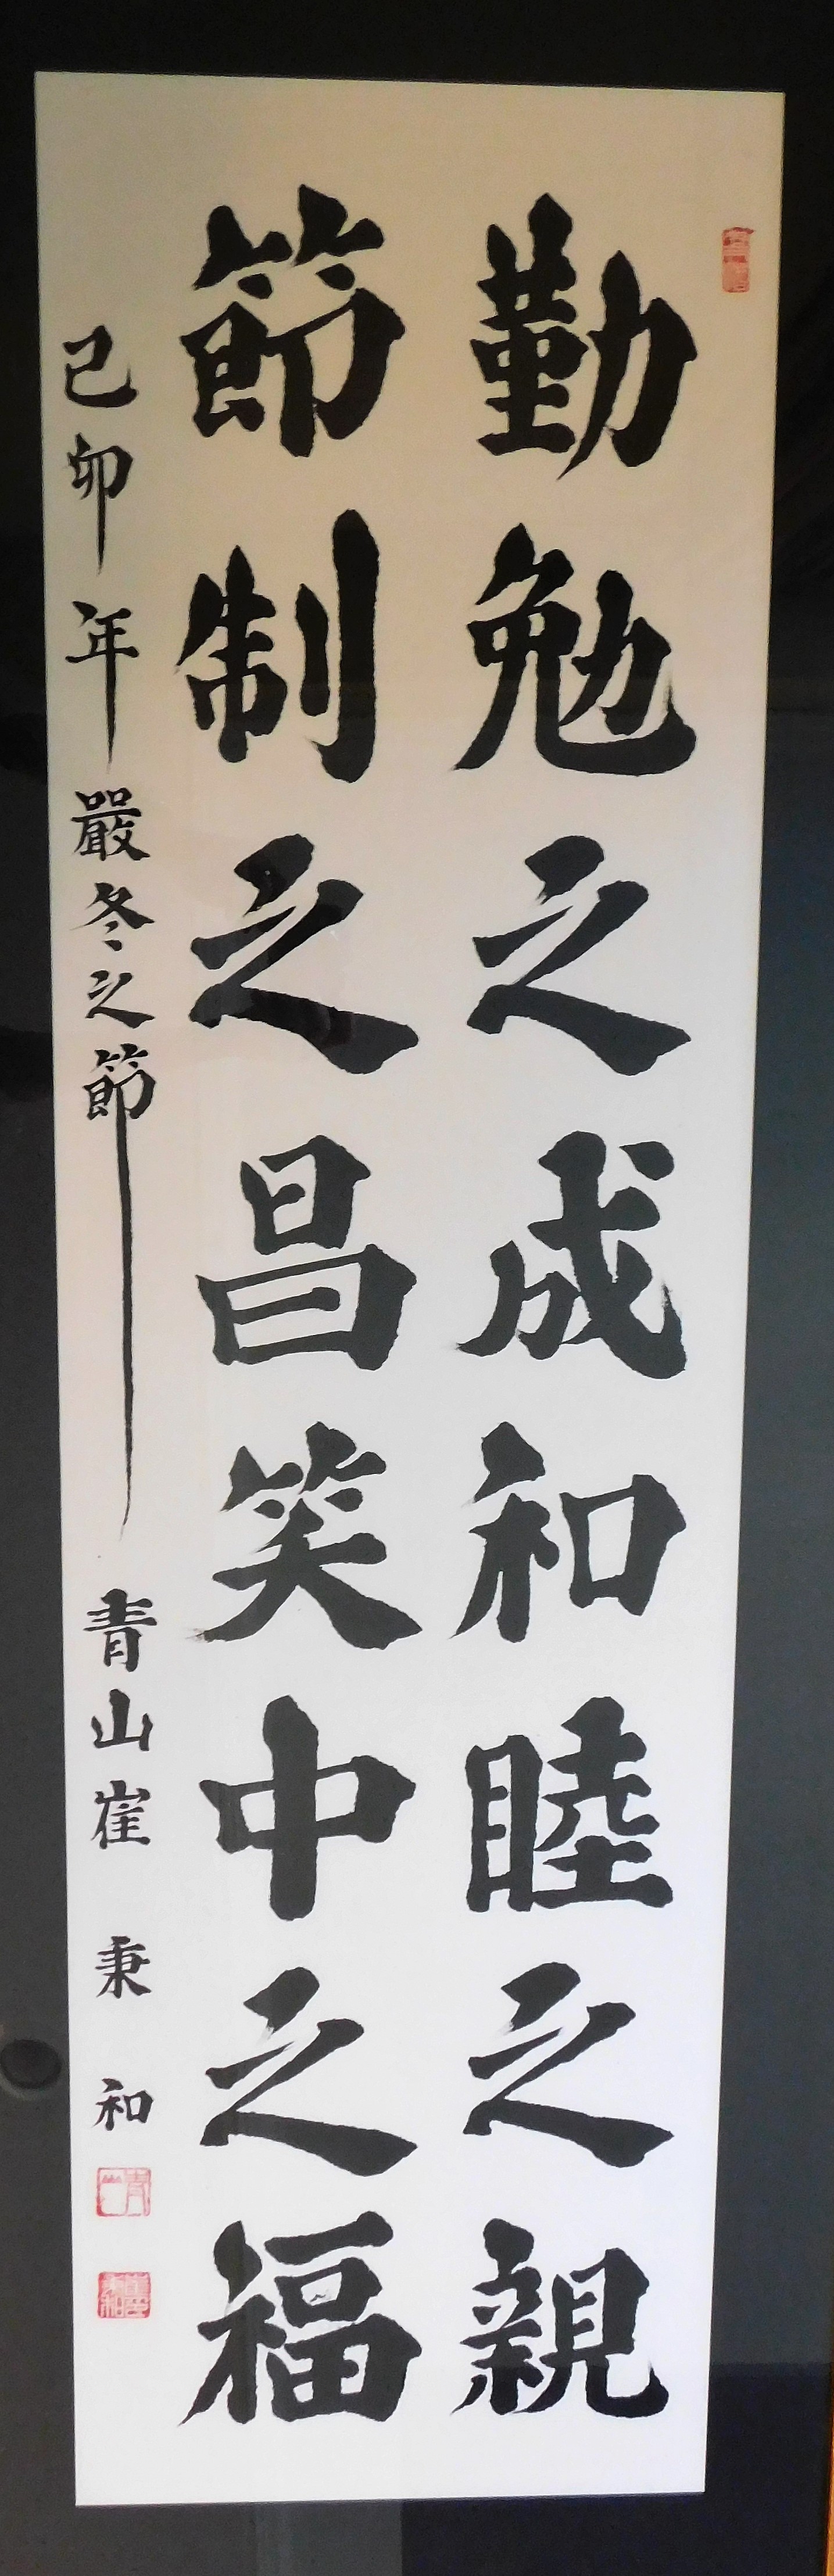 勤勉之成和睦之親
節制之昌笑中之福
己卯年嚴冬之節 青山崔秉和